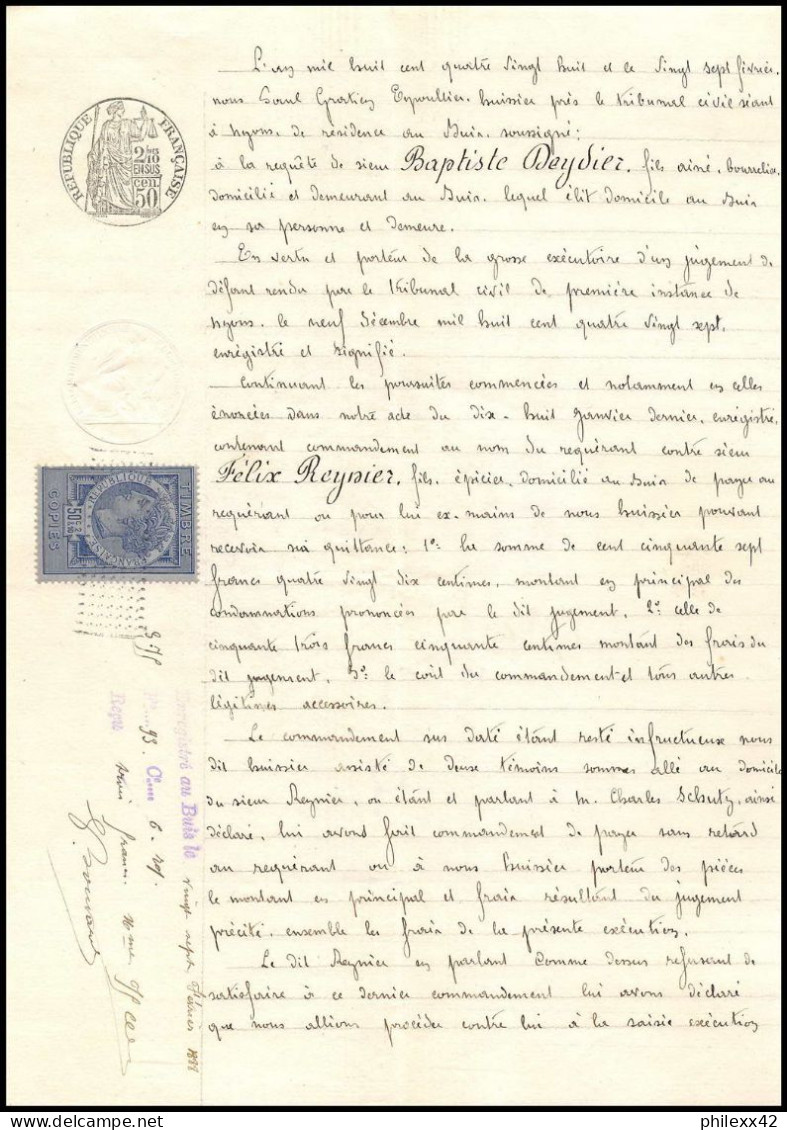 L'an mil huit cent quatre vingt huit et le vingt sept février.
nous Paul Gratien Eyroullier. huissier près le tribunal civil séant
à Nyons. de résidence au Buis. soussigné:
à la requête de sieur Baptiste Deydier. fils ainé, bourrelier,
domicilié et demeurant au Buis. lequel élit domicile au Buis
en sa personne et demeure.
En vertu et porteur de la grosse exécutoire d'un jugement de
défaut rendu par le tribunal civil de première instance de
Nyons. le neuf décembre mil huit cent quatre vingt sept,
enrégistré et signifié.
Continuant les poursuites commencées et notamment en celles
énoncées dans notre acte du dix-huit janvier dernier, enrégistré,
contenant commandement au nom du requérant contre sieur
Félix Reynier, fils. épicier, domicilié au Buis de payer au
requérant ou pour lui ex-mains de nous huissier pouvant
recevoir sa quittance: 1º: la somme de cent cinquante sept
francs quatre vingt dix centimes, montant en principal des
condamnations prononcées par le dit jugement, 2º: celle de
cinquante trois francs cinquante centimes montant des frais du
dit jugement, 3º le coût du commandement et tous autres
légitimes accessoires.
Le commandement sus daté étant resté infructueux nous
dit huissier assisté de deux témoins sommes allé au domicile
du sieur Reynier, ou étant et parlant à M. Charles Schutz, ainsi
déclaré, lui avons fait commandement de payer sans retard
au requérant ou à nous huissier porteur des pièces
le montant en principal et frais résultant du jugement
précité, ensemble les frais de la présente exécution.
Le dit Reynier en parlant comme dessus refusant de
satisfaire à ce dernier commandement lui avons déclaré
que nous allions procéder contre lui à la saisie exécution
RÉPUBLIQUE FRANÇAISE
2/10
EN SUS
50 cen.
TIMBRE
RÉPUBLIQUE FRANÇAISE
50c
COPIES
Enregistré au Buis le vingt sept février 1888
93. Cse 6.
Reçu
philexx42